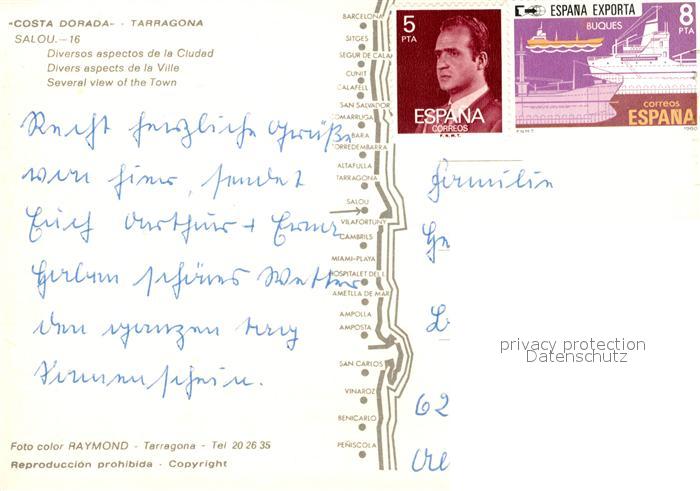 "COSTA DORADA" - TARRAGONA
SALOU.-16
Diversos aspectos de la Ciudad
Divers aspects de la Ville
Several view of the Town
Recht herzliche Grüße
von hier, sendet
Euch Arthur + Erna
Haben schönes Wetter
den ganzen Tag
Sonnenschein.
Foto color RAYMOND - Tarragona - Tel 20 26 35
Reproducción prohibida - Copyright
BARCELONA
SITGES
SEGUR DE CALA
CUNIT
CALAFELL
SAN SALVADOR
COMARRUGA
BARA
TORREDEMBARRA
ALTAFULLA
TARRAGONA
SALOU
VILAFORTUNY
CAMBRILS
MIAMI-PLAYA
HOSPITALET DE L I.
AMETLLA DE MAR
AMPOLLA
AMPOSTA
SAN CARLOS
VINAROZ
BENICARLO
PEÑISCOLA
5
PTA
ESPAÑA
CORREOS
F.N.M.T.
ESPAÑA EXPORTA
8
PTA
BUQUES
correos
ESPAÑA
F.N.M.T.
1980
Familie
62
privacy protection
Datenschutz